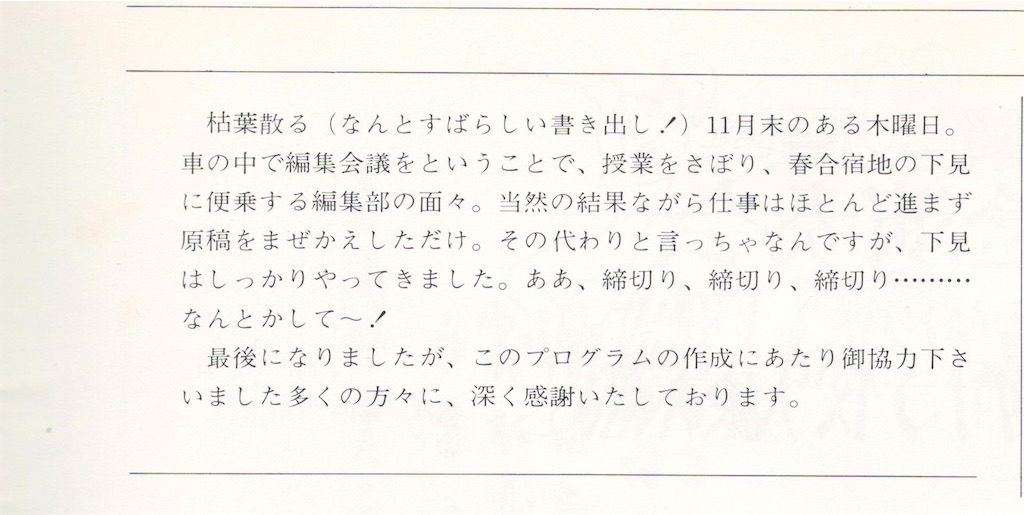 枯葉散る（なんとすばらしい書き出し！）11月末のある木曜日。
車の中で編集会議をということで、授業をさぼり、春合宿地の下見
に便乗する編集部の面々。当然の結果ながら仕事はほとんど進まず
原稿をまぜかえしただけ。その代わりと言っちゃなんですが、下見
はしっかりやってきました。ああ、締切り、締切り、締切り………
なんとかして〜！
最後になりましたが、このプログラムの作成にあたり御協力下さ
いました多くの方々に、深く感謝いたしております。